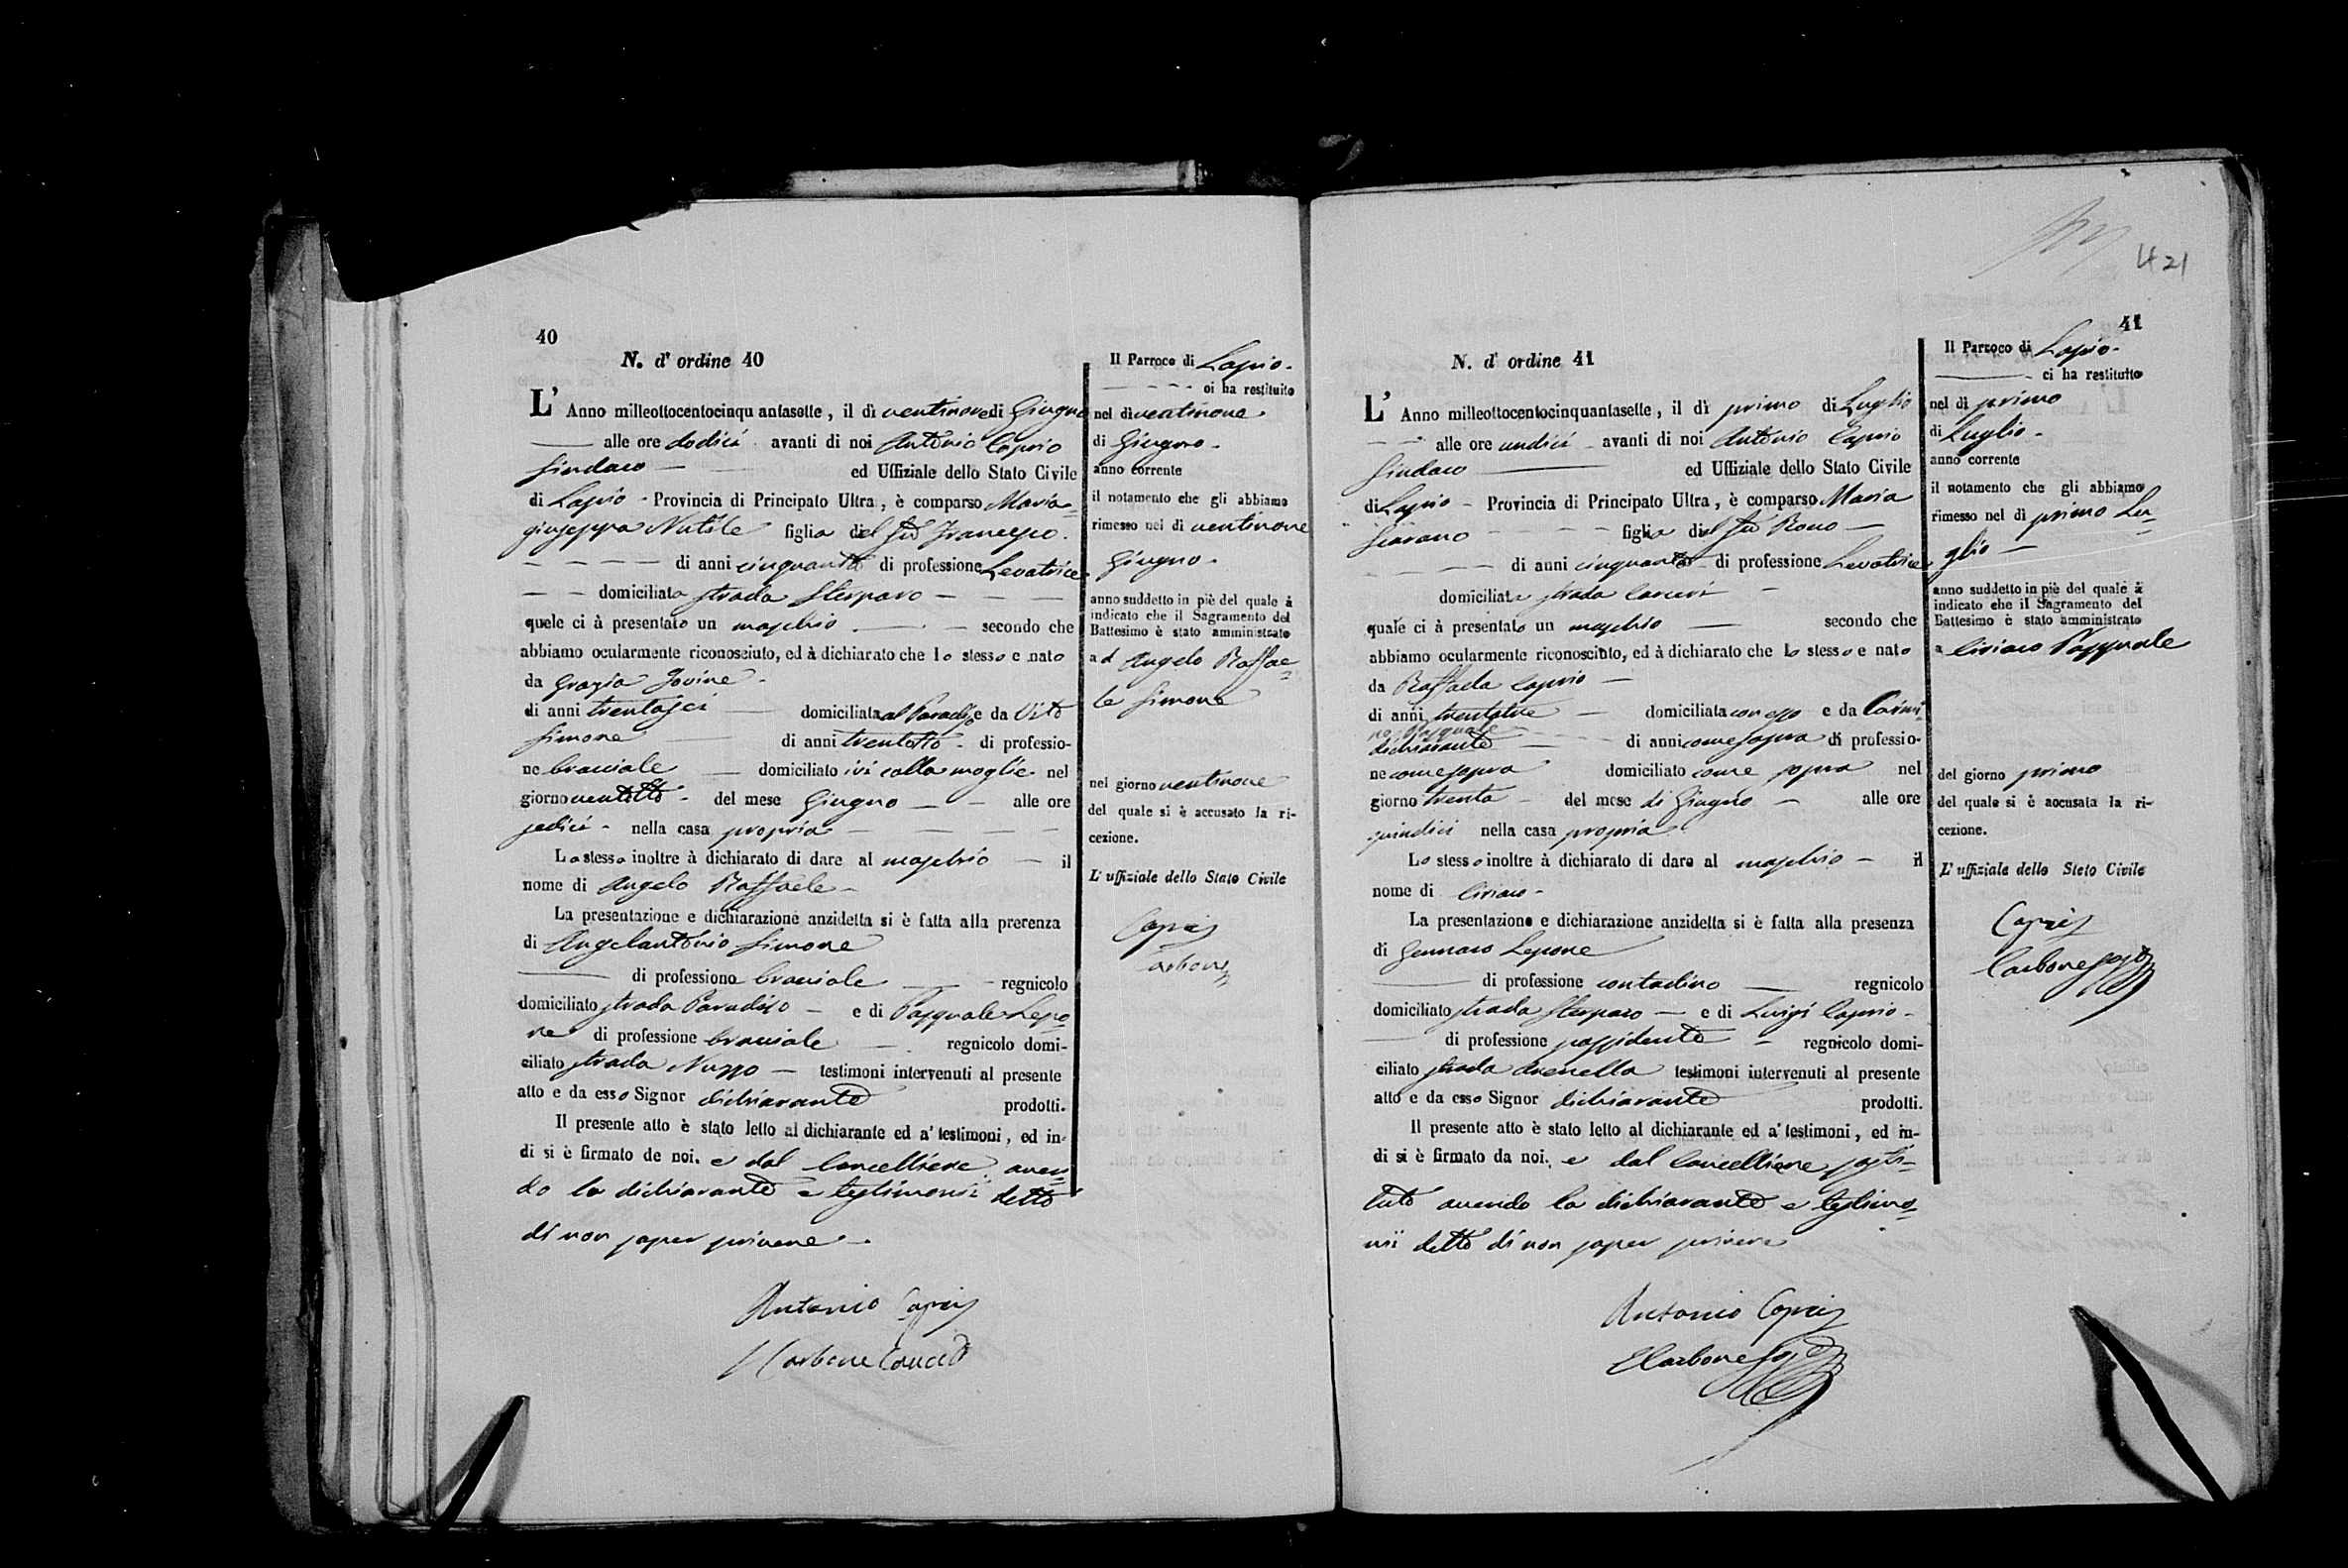 40
N. d' ordine 40
L' Anno milleottocentocinquantasette, il dì ventinove di Giugno
alle ore dodici avanti di noi Antonio Caprio
Sindaco ed Uffiziale dello Stato Civile
di Lapio Provincia di Principato Ultra, è comparso Maria
giuseppa Nutile figlia del fu Francesco.
di anni cinquanta di professione Levatrice
domiciliata strada Sterparo
quele ci à presentato un maschio secondo che
abbiamo ocularmente riconosciuto, ed à dichiarato che lo stesso e nato
da Grazia Jovine
di anni trentasei domiciliata al Paradiso e da Vito
Simone di anni trentotto di professio-
ne bracciale domiciliato ivi colla moglie nel
giorno ventotto del mese Giugno alle ore
sedici nella casa propria
La stessa inoltre à dichiarato di dare al maschio il
nome di Angelo Raffaele
La presentazione e dichiarazione anzidetta si è fatta alla prerenza
di Angelantonio Simone
di professione bracciale regnicolo
domiciliato strada Paradiso e di Pasquale Lepo-
re di professione bracciale regnicolo domi-
ciliato strada Nuzzo testimoni intervenuti al presente
atto e da esso Signor dichiarante prodotti.
Il presente atto è stato letto al dichiarante ed a' testimoni, ed in-
di si è firmato de noi. e dal Cancelliere aven-
do la dichiarante e testimonii detto
di non saper scrivere
Antonio Caprio
Carbone Canc
Il Parroco di Lapio.
oi ha restituito
nel dì ventinove
di Giugno.
anno corrente
il notamento che gli abbiamo
rimesso nel dì ventinove
Giugno.
anno suddetto in piè del quale à
indicato che il Sagramento del
Battesimo è stato amministrato
ad Angelo Raffae-
le Simone
nel giorno ventinove
del quale si è accusato la ri-
cezione.
L' uffiziale dello Stato Civile
Caprio
Carbone
421
41
N. d' ordine 41
L' Anno milleottocentocinquantasette, il dì primo di Luglio
alle ore undici avanti di noi Antonio Caprio
Sindaco ed Uffiziale dello Stato Civile
di Lapio Provincia di Principato Ultra, è comparso Maria
figlia del fu Rocco
di anni cinquanta di professione Levatrice
domiciliata strada Carceri
quale ci à presentato un maschio secondo che
abbiamo ocularmente riconosciuto, ed à dichiarato che lo stesso e nato
da Raffaela Caprio
di anni trentatre domiciliata con esso e da Carmi-
no Pasquale
dichiarante di anni come sopra di professio-
ne come sopra domiciliato come sopra nel
giorno trenta del mese di Giugno alle ore
quindici nella casa propria
Lo stesso inoltre à dichiarato di dare al maschio il
nome di Ciriaco
La presentazione e dichiarazione anzidetta si è fatta alla presenza
di Gennaro Lepore
di professione contadino regnicolo
domiciliato strada Sterparo e di Luigi Caprio
di professione possidente regnicolo domi-
ciliato strada Arenella testimoni intervenuti al presente
atto e da esso Signor dichiarante prodotti.
Il presente atto è stato letto al dichiarante ed a' testimoni, ed in-
di si è firmato da noi. e dal Cancelliere sosti-
tuto avendo la dichiarante e testimo-
nii detto di non saper scrivere
Antonio Caprio
Carbone
Il Parroco di Lapio.
ci ha restituito
nel dì primo
di Luglio.
anno corrente
il notamento che gli abbiamo
rimesso nel dì primo Lu-
glio
anno suddetto in piè del quale à
indicato che il Sagramento del
Battesimo è stato amministrato
a Ciriaco Pasquale
del giorno primo
del quale si è accusata la ri-
cezione.
L' uffiziale dello Stato Civile
Caprio
Carbone